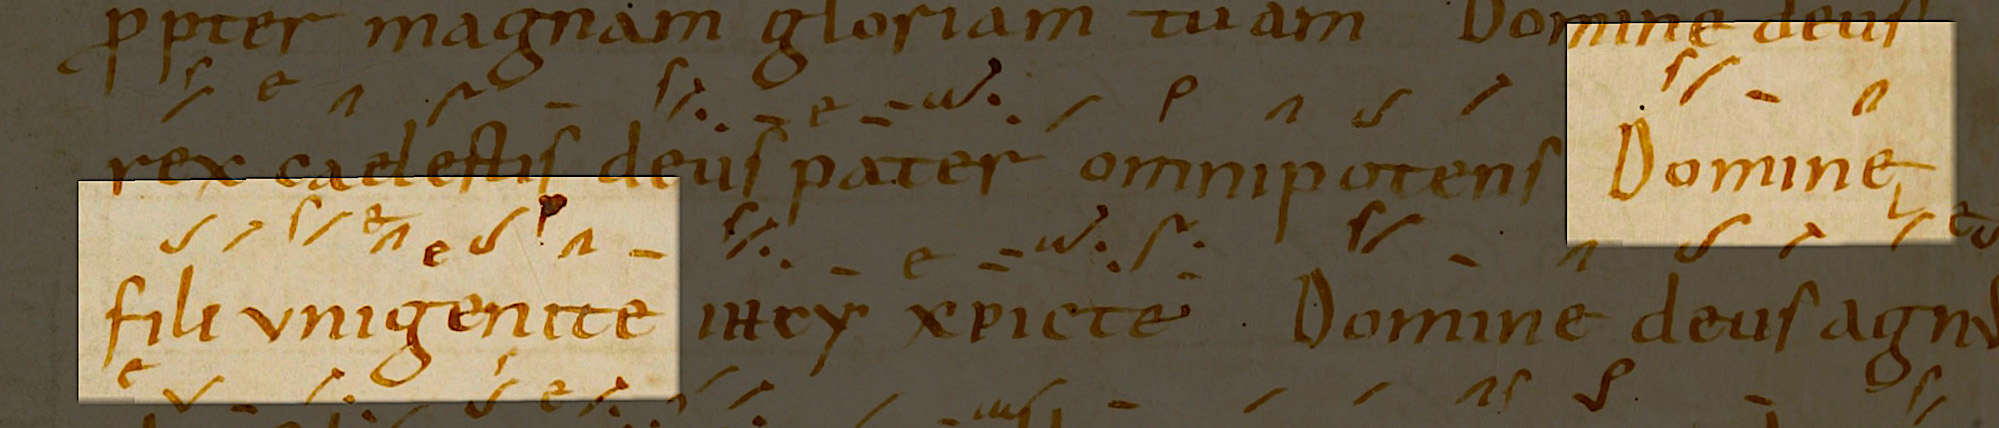 ꝓpter magnam gloriam tuam Domine deus
rex caelestis deus pater omnipotens Domine
fili vnigenite ihcy xpicte · Domine deus agnv